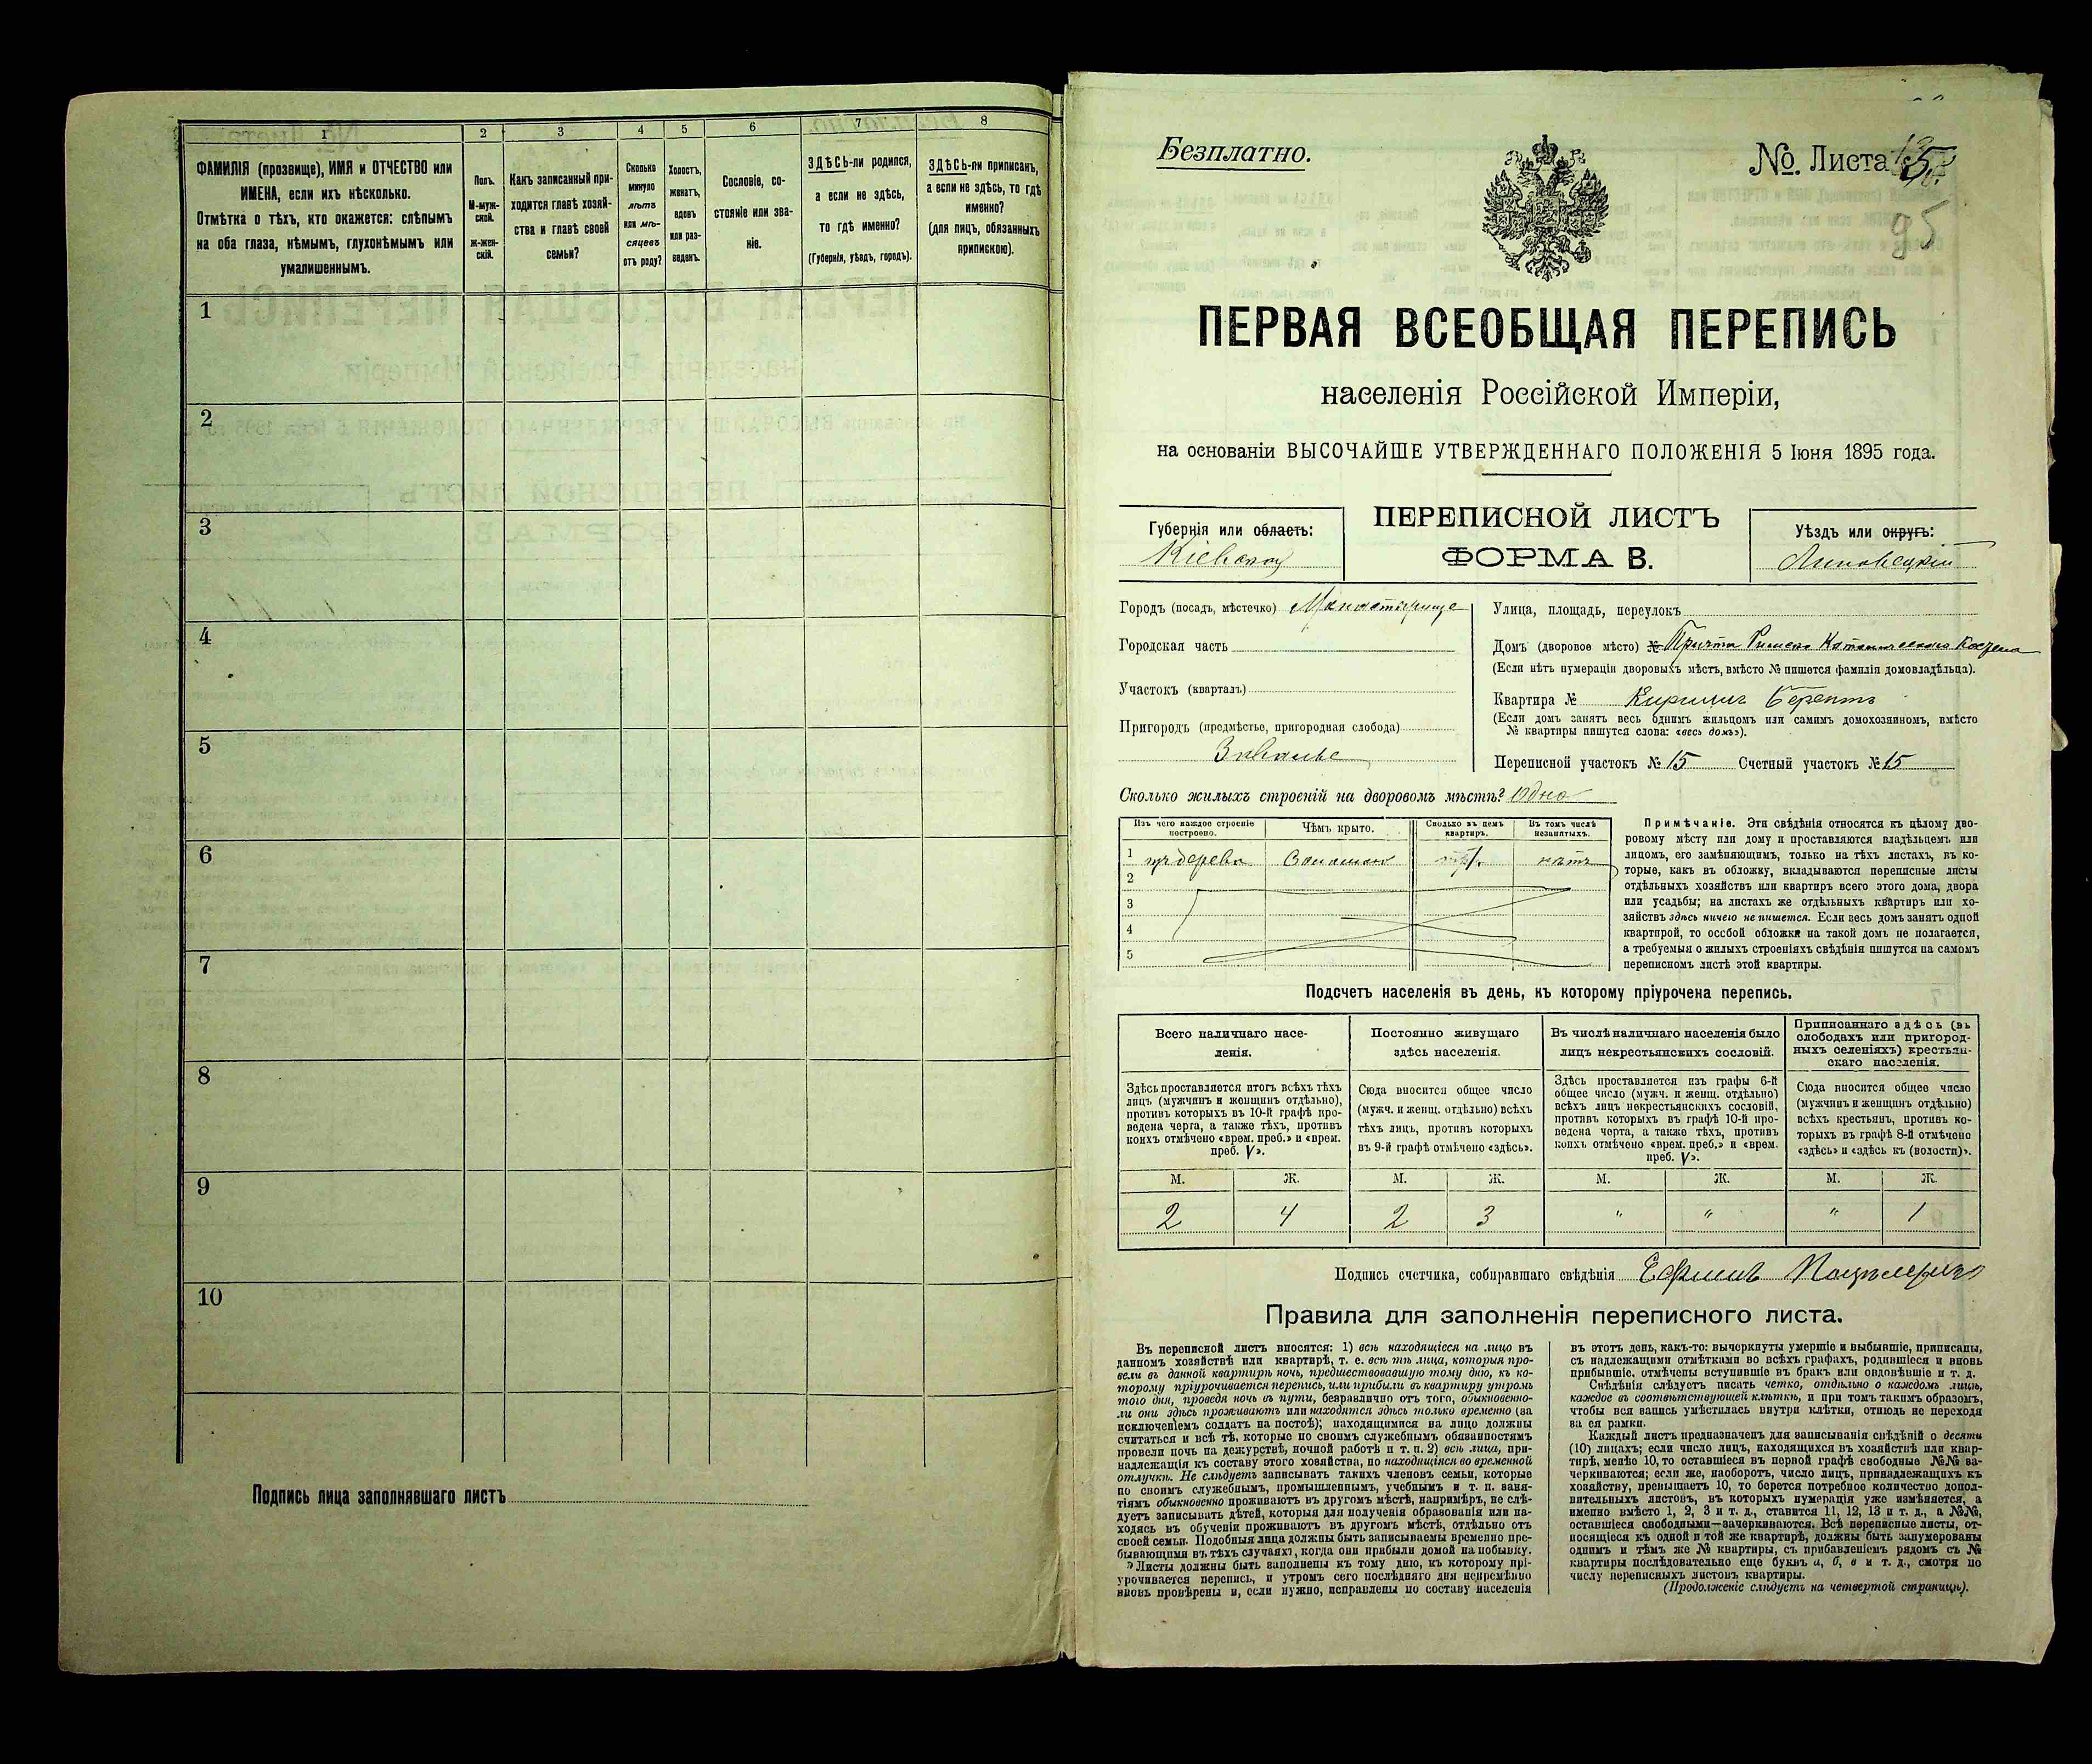 1 2 3 4 5 6 7 8
ФАМИЛІЯ (прозвище), ИМЯ и ОТЧЕСТВО или
ИМЕНА, если ихъ нѣсколько.
Отмѣтка о тѣхъ, кто окажется: слѣпымъ
на оба глаза, нѣмымъ, глухонѣмымъ или
умалишеннымъ.
Полъ.
М-муж-
ской.
ж-жен-
скій.
Какъ записанный при-
ходится главѣ хозяй-
ства и главѣ своей
семьи?
Сколько
минуло
лѣтъ
или мѣ-
сяцевъ
отъ роду?
Холостъ,
женатъ,
вдовъ
или раз-
веденъ.
Сословіе, со-
стояніе или зва-
ніе.
ЗДѢСЬ-ли родился,
а если не здѣсь,
то гдѣ именно?
(Губернія, уѣздъ, городъ).
ЗДѢСЬ-ли приписанъ,
а если не здѣсь, то гдѣ
именно?
(для лицъ, обязанныхъ
припискою).
1
2
3
4
5
6
7
8
9
10
Подпись лица заполнявшаго листъ
Безплатно.
№. Листа 5
95
ПЕРВАЯ ВСЕОБЩАЯ ПЕРЕПИСЬ
населенія Россійской Имперіи,
на основаніи ВЫСОЧАЙШЕ УТВЕРЖДЕННАГО ПОЛОЖЕНІЯ 5 Іюня 1895 года.
ПЕРЕПИСНОЙ ЛИСТЪ
ФОРМА В.
Губернія или область:
Кіевская
Уѣздъ или округъ:
Липовецкій
Городъ (посадъ, мѣстечко) Монастырище
Городская часть
Участокъ (кварталъ)
Пригородъ (предмѣстье, пригородная слобода)
Завалье
Улица, площадь, переулокъ
Домъ (дворовое мѣсто) № Причта Римско Католическаго Костела
(Если нѣтъ нумераціи дворовыхъ мѣстъ, вмѣсто № пишется фамилія домовладѣльца).
Квартира №
(Если домъ занятъ весь однимъ жильцомъ или самимъ домохозяиномъ, вмѣсто
№ квартиры пишутся слова: «весь домъ»).
Переписной участокъ № 15 Счетный участокъ № 15
Сколько жилыхъ строеній на дворовомъ мѣстѣ? Одно
Изъ чего каждое строеніе
построено.
Чѣмъ крыто.
Сколько въ немъ
квартиръ.
Въ томъ числѣ
незанятыхъ.
1 изъ дерева Соломою три нѣтъ
2
3
4
5
Примѣчаніе. Эти свѣдѣнія относятся къ цѣлому дво-
ровому мѣсту или дому и проставляются владѣльцемъ или
лицомъ, его замѣняющимъ, только на тѣхъ листахъ, въ ко-
торые, какъ въ обложку, вкладываются переписные листы
отдѣльныхъ хозяйствъ или квартиръ всего этого дома, двора
или усадьбы; на листахъ же отдѣльныхъ квартиръ или хо-
зяйствъ здѣсь ничего не пишется. Если весь домъ занятъ одной
квартирой, то особой обложки на такой домъ не полагается,
а требуемыя о жилыхъ строеніяхъ свѣдѣнія пишутся на самомъ
переписномъ листѣ этой квартиры.
Подсчетъ населенія въ день, къ которому пріурочена перепись.
Всего наличнаго насе-
ленія.
Здѣсь проставляется итогъ всѣхъ тѣхъ
лицъ (мужчинъ и женщинъ отдѣльно),
противъ которыхъ въ 10-й графѣ про-
ведена черта, а также тѣхъ, противъ
коихъ отмѣчено «врем. преб.» и «врем.
преб. V».
Постоянно живущаго
здѣсь населенія.
Сюда вносится общее число
(мужч. и женщ. отдѣльно) всѣхъ
тѣхъ лицъ, противъ которыхъ
въ 9-й графѣ отмѣчено «здѣсь».
Въ числѣ наличнаго населенія было
лицъ некрестьянскихъ сословій.
Здѣсь проставляется изъ графы 6-й
общее число (мужч. и женщ. отдѣльно)
всѣхъ лицъ некрестьянскихъ сословій,
противъ которыхъ въ графѣ 10-й про-
ведена черта, а также тѣхъ, противъ
коихъ отмѣчено «врем. преб.» и «врем.
преб. V».
Приписаннаго здѣсь (въ
слободахъ или пригород-
ныхъ селеніяхъ) крестьян-
скаго населенія.
Сюда вносится общее число
(мужчинъ и женщинъ отдѣльно)
всѣхъ крестьянъ, противъ ко-
торыхъ въ графѣ 8-й отмѣчено
«здѣсь» и «здѣсь къ (волости)».
М. Ж. М. Ж. М. Ж. М. Ж.
2 4 2 3 " " " 1
Подпись счетчика, собиравшаго свѣдѣнія
Правила для заполненія переписного листа.
Въ переписной листъ вносятся: 1) всѣ находящіеся на лицо въ
данномъ хозяйствѣ или квартирѣ, т. е. всѣ тѣ лица, которыя про-
вели въ данной квартирѣ ночь, предшествовавшую тому дню, къ ко-
торому пріурочивается перепись, или прибыли въ квартиру утромъ
того дня, проведя ночь въ пути, безразлично отъ того, обыкновенно-
ли они здѣсь проживаютъ или находятся здѣсь только временно (за
исключеніемъ солдатъ на постоѣ); находящимися на лицо должны
считаться и всѣ тѣ, которые по своимъ служебнымъ обязанностямъ
провели ночь на дежурствѣ, ночной работѣ и т. п. 2) всѣ лица, при-
надлежащія къ составу этого хозяйства, но находящіяся во временной
отлучкѣ. Не слѣдуетъ записывать такихъ членовъ семьи, которые
по своимъ служебнымъ, промышленнымъ, учебнымъ и т. п. заня-
тіямъ обыкновенно проживаютъ въ другомъ мѣстѣ, напримѣръ, не слѣ-
дуетъ записывать дѣтей, которыя для полученія образованія или на-
ходясь въ обученіи проживаютъ въ другомъ мѣстѣ, отдѣльно отъ
своей семьи. Подобныя лица должны быть записываемы временно пре-
бывающими въ тѣхъ случаяхъ, когда они прибыли домой на побывку.
Листы должны быть заполнены къ тому дню, къ которому прі-
урочивается перепись, и утромъ сего послѣдняго дня непремѣнно
вновь провѣрены и, если нужно, исправлены по составу населенія
въ этотъ день, какъ-то: вычеркнуты умершіе и выбывшіе, приписаны,
съ надлежащими отмѣтками во всѣхъ графахъ, родившіеся и вновь
прибывшіе, отмѣчены вступившіе въ бракъ или овдовѣвшіе и т. д.
Свѣдѣнія слѣдуетъ писать четко, отдѣльно о каждомъ лицѣ,
каждое въ соотвѣтствующей клѣткѣ, и при томъ такимъ образомъ,
чтобы вся запись умѣстилась внутри клѣтки, отнюдь не переходя
за ея рамки.
Каждый листъ предназначенъ для записыванія свѣдѣній о десяти
(10) лицахъ; если число лицъ, находящихся въ хозяйствѣ или квар-
тирѣ, менѣе 10, то оставшіеся въ первой графѣ свободные №№ за-
черкиваются; если же, наоборотъ, число лицъ, принадлежащихъ къ
хозяйству, превышаетъ 10, то берется потребное количество допол-
нительныхъ листовъ, въ которыхъ нумерація уже измѣняется, а
именно вмѣсто 1, 2, 3 и т. д., ставится 11, 12, 13 и т. д., а №№,
оставшіеся свободными—зачеркиваются. Всѣ переписные листы, от-
носящіеся къ одной и той же квартирѣ, должны быть занумерованы
однимъ и тѣмъ же № квартиры, съ прибавленіемъ рядомъ съ №
квартиры послѣдовательно еще буквъ а, б, в и т. д., смотря по
числу переписныхъ листовъ квартиры.
(Продолженіе слѣдуетъ на четвертой страницѣ).